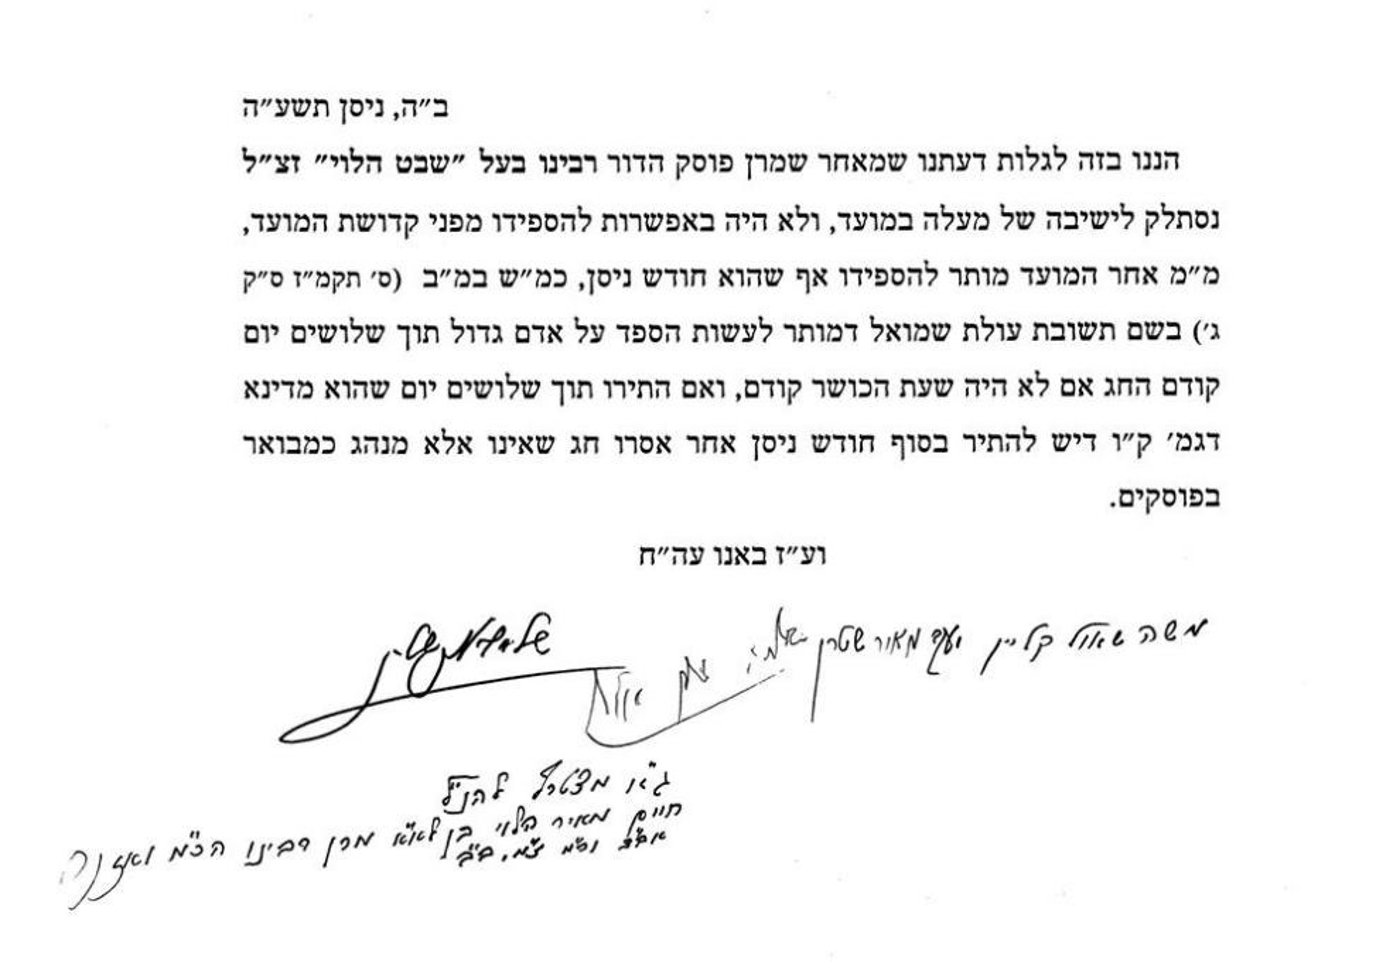 ב״ה, ניסן תשע״ה
הננו בזה לגלות דעתנו שמאחר שמרן פוסק הדור רבינו בעל ״שבט הלוי״ זצ״ל
נסתלק לישיבה של מעלה במועד, ולא היה באפשרות להספידו מפני קדושת המועד,
מ״מ אחר המועד מותר להספידו אף שהוא חודש ניסן, כמ״ש במ״ב (ס׳ תקמ״ז ס״ק
ג׳) בשם תשובת עולת שמואל דמותר לעשות הספד על אדם גדול תוך שלושים יום
קודם החג אם לא היה שעת הכושר קודם, ואם התירו תוך שלושים יום שהוא מדינא
דגמ׳ ק״ו דיש להתיר בסוף חודש ניסן אחר אסרו חג שאינו אלא מנהג כמבואר
בפוסקים.
וע״ז באנו עה״ח
משה שאול קליין מאיר שטרן
מצטרף להנ״ל
חיים מאיר הלוי בן לאא״א מרן רבינו הכ״מ ואזנר